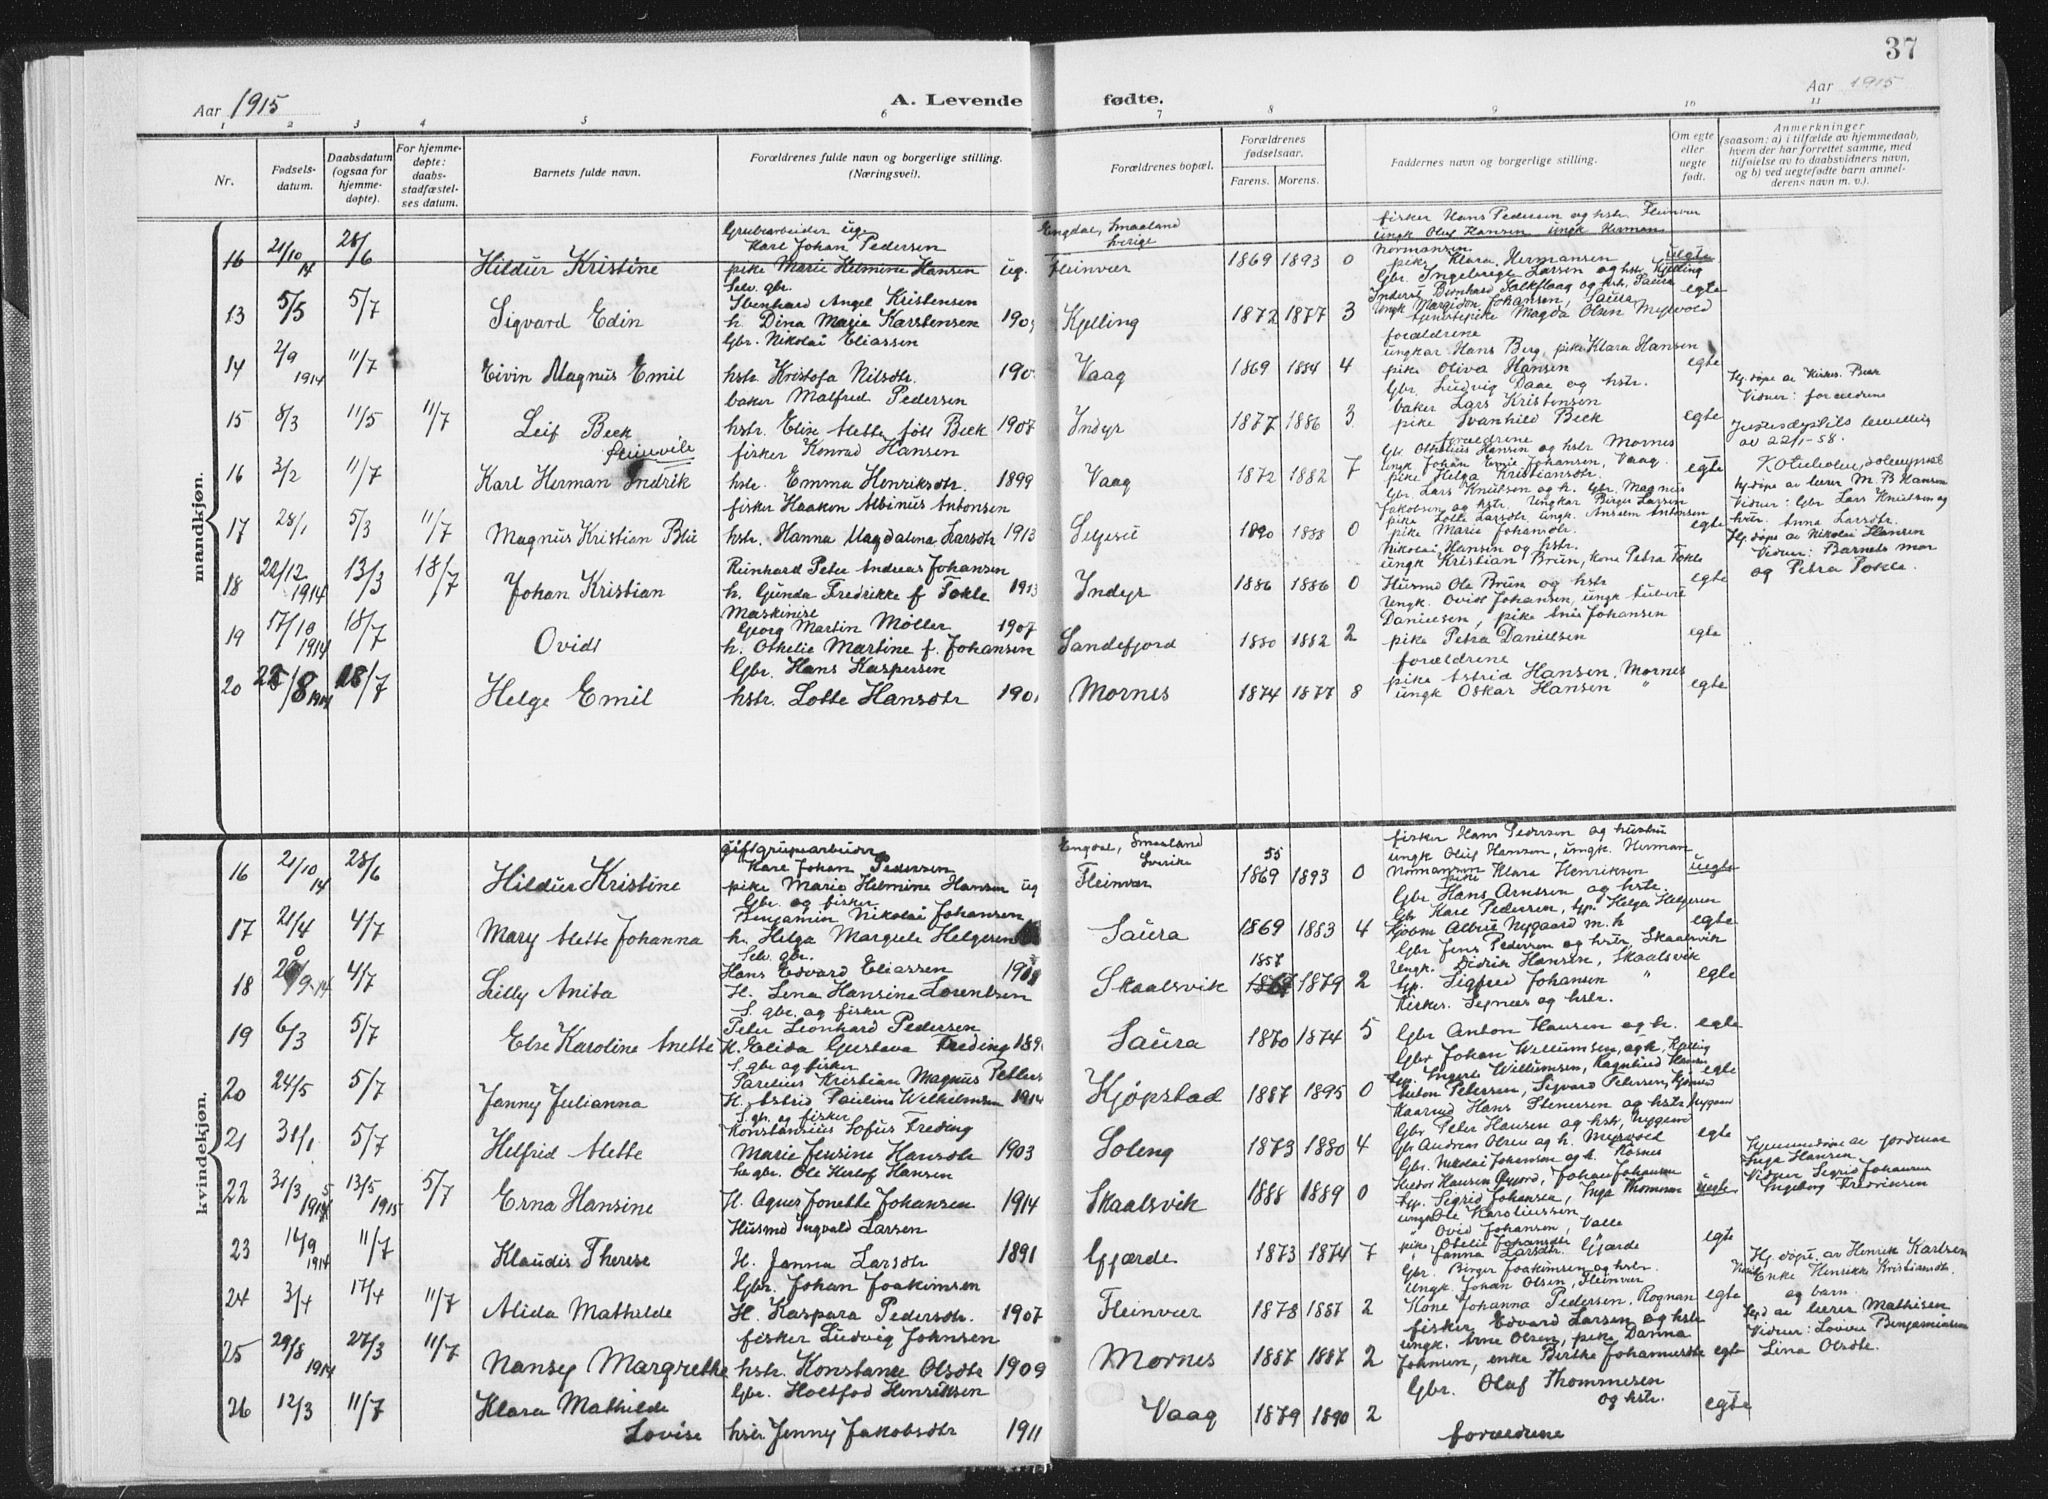 37
Aar 1915
A. Levende
fødte.
Aar 1915
1 2 3 4 5 6 7 8 9 10 11
Nr.
Fødsels-
datum.
Daabsdatum
(ogsaa for
hjemme-
døpte).
For hjemme-
døpte:
daabs-
stadfæstel-
ses datum.
Barnets fulde navn.
Forældrenes fulde navn og borgerlige stilling.
(Næringsvei).
Forældrenes bopæl.
Forældrenes
fødselsaar.
Farens. Morens.
Faddernes navn og borgerlige stilling.
Om egte
eller
uegte
født.
Anmerkninger
(saasom: a) i tilfælde av hjemmedaab,
hvem der har forrettet samme, med
tilføielse av to daabsvidners navn,
og b) ved uegtefødte barn anmel-
derens navn m. v.).
mandkjøn.
Grubearbeider
Engdal, Smaaland
fisker Hans Pedersen og hstr. Fleinvær
Karl Johan Pedersen
Sverige
ungk Oluf Hansen ungk Herman
Normansen
16 21/10 14 28/6 Hildur Kristine pike Marie Helmine Hansen ug. Fleinvær 1869 1893 0 pike Klara Hermansen uegte
Selv. gbr.
Gbr. Ingebregt Larsen og hstr. Kjelling
Ibenhard Angel Kristensen
13 5/5 5/7 Sigvard Edin h. Dina Marie Karstensen Kjelling 1872 1877 3 tjenestepike Magda Olsen Myrvold egte
Gbr. Nikolai Eliassen
forældrene
ungkar Hans Berg, pike Klara Hansen
14 2/9 1914 11/7 Eivin Magnus Emil hstr. Kristofa Nilsdtr. Vaag 1869 1884 4 pike Oliva Hansen egte
baker Malfred Pedersen
Gbr. Ludvig Daae og hstr.
baker Lars Kristensen
Vidner: forældrene
15 8/3 11/5 11/7 Leif Beck hstr. Elise Mette født Beck 1907 Indyr 1877 1886 3 pike Svanhild Beck egte
av 22/1-58.
fisker Konrad Hansen
forældrene
Gbr. Othelius Hansen og hstr Mornes
ungk Johan Emil Johansen, Vaag.
16 3/2 11/7 Karl Herman Indrik hstr. Emma Henriksdtr. 1899 Vaag 1872 1882 7 pike Helga Kristiansdtr. egte
hj.døpt av lærer M. B Hansen
fisker Haakon Albinus Antonsen
Gbr. Lars Knutsen og h. Gbr. Magnus
Jakobsen og hstr. Ungkar Birger Larsen
Vidner: Gbr Lars Knutsen og
hstr. Anna Larsdtr.
pike Lotte Larsdtr. ungk. Anselm Antonsen
17 28/1 5/3 11/7 Magnus Kristian Bli hstr. Hanna Magdalena Larsdtr 1913 Selgevi 1890 1888 0 pike Marie Johansdtr. egte
Hj. døpt av Nikolai Hansen
Nikolai Hansen og hstr.
Vidner: Barnets mor
og Petra Tokle.
Reinhard Peter Andreas Johansen
ungk Kristian Brun, kone Petra Tokle
18 22/12 1914 13/3 18/7 Johan Kristian h. Gunda Fredrikke f Tokle 1913 Indyr 1886 1886 0 Husmd Ole Brun og hstr egte
Maskinist
Georg Martin Möller 1907
Ungk. Ovidt Johansen, ungk
Danielsen, pike Johansen
19 17/10 1914 18/7 Ovidt h. Othelie Martine f. Johansen Sandefjord 1880 1882 2 pike Petra Danielsen egte
Gbr. Hans Kaspersen
forældrene
pike Astrid Hansen, Mornes
20 25/8 1914 18/7 Helge Emil hstr. Lotte Hansdtr Mornes 1874 1877 8 ungk Oskar Hansen " egte
kvindekjøn.
gift grupearbeider
Karl Johan Pedersen
Engdal, Smaaland
Sverike
55
fisker Hans Pedersen og hustru
ungk Oluf Hansen, ungk. Herman
Normansen
16 21/10 14 28/6 Hildur Kristine pike Marie Helmine Hansen ug Fleinvær 1869 1893 0 pike Klara Henriksen uegte
Gbr. og fisker
Benjamin Nikolai Johansen
Gbr Hans Arntsen og hstr.
Gbr Karl Pedersen, tp. Helga Helgesen
17 21/4 4/7 Mary Mette Johanna h. Helga Margrete Helgesen Saura 1869 1883 4 Albert Nygaard m. h egte
Selv. gbr.
Hans Edvard Eliassen
1857
Gbr Jens Pedersen og hstr, Skaalsvik
Ungk. Didrik Hansen, Skaalsvik
18 4/7 Lilly Anita H. Lena Hansine Lorentsen Skaalsvik 1879 2 tp. Sigfred Johansen " egte
S. gbr. og fisker
Kirkes. Segnæs og hstr.
Peter Leonhard Pedersen
19 6/3 5/7 Else Karoline Anette H. Elida Gustava Freding Saura 1870 1874 5 Gbr Anton Hansen og h. egte
S. gbr og fisker
Gbr Johan Willumsen, og h, Kjelling
Parelius Kristian Magnus Petters
tp. Ingert Willumsen, Ragnhild Hansen
20 24/5 5/7 Janny Julianna H. Astrid Pauline Wilhelmsen 1914 Kjøpstad 1887 1895 0 Anton Petersen, Sigvard Petersen egte
S. gbr. og fisker
Hans Stenersen og hstr
Konstansius Sofus Freding
Gbr Peter Hansen og hstr, Nygaard
21 31/1 5/7 Helfrid Mette Marie Jensine Hansdtr 1903 Soleng 1873 1880 4 Gbr Andreas Olsen og h. Myrvold egte
Hjemmedøpt av jordmor
Inga Hansen
gbr. Ole Herlof Hansen
Gbr. Nikolai Johansen og h. Røsnes
Hansen Øyjord, Johan Johansen
Vidner Sigrid Johansen
Ingeborg Fredriksen
22 31/3 1915 13/5 1915 5/7 Erna Hansine H. Agnes Jonette Johansen 1914 Skaalsvik 1888 1889 0 tp. Sigrid Johansen, Inga Thomasen uegte
Husmd Ingvald Larsen
ungk Ole Karoliussen
" Ovid Johansen, Valle
pike Otelie Johansdtr
23 16/9 1914 11/7 Klaudis Therese H. Janna Larsdtr 1891 Gjærde 1873 1874 7 " Janna Larsdtr. Gjærde egte
Hj. døpt. av Henrik Karlsen
Gbr. Johan Joakimsen
Gbr. Birger Joakimsen og hstr.
Ungk. Johan Olsen, Fleinvær
Enke Henrikke Kristiansdtr.
og barn.
24 3/4 17/4 11/7 Alida Mathilde H. Kaspara Pedersdtr. 1907 Fleinvær 1878 1887 2 Kone Johanna Pedersen, Rognan egte
Hjd av lærer Mathisen
fisker Ludvig Johnsen
fisker Edvard Larsen og hstr
ungk. Arne Olsen, pike Danna
Vidner: Lovise Benjaminsen
25 29/8 1914 27/3 11/7 Nansy Margrethe hstr. Konstanse Olsdtr 1909 Mornes 1887 1887 2 Johnsen, enke Birthe Johannesdtr egte Lina Olsdtr.
Gbr. Holtfod Henriksen
Gbr. Oluf Thommesen
og hstr.
26 12/3 11/7 Klara Mathilde
Lovise hstr Jenny Jakobsdtr 1911 Vaag 1879 1890 2 forældrene egte